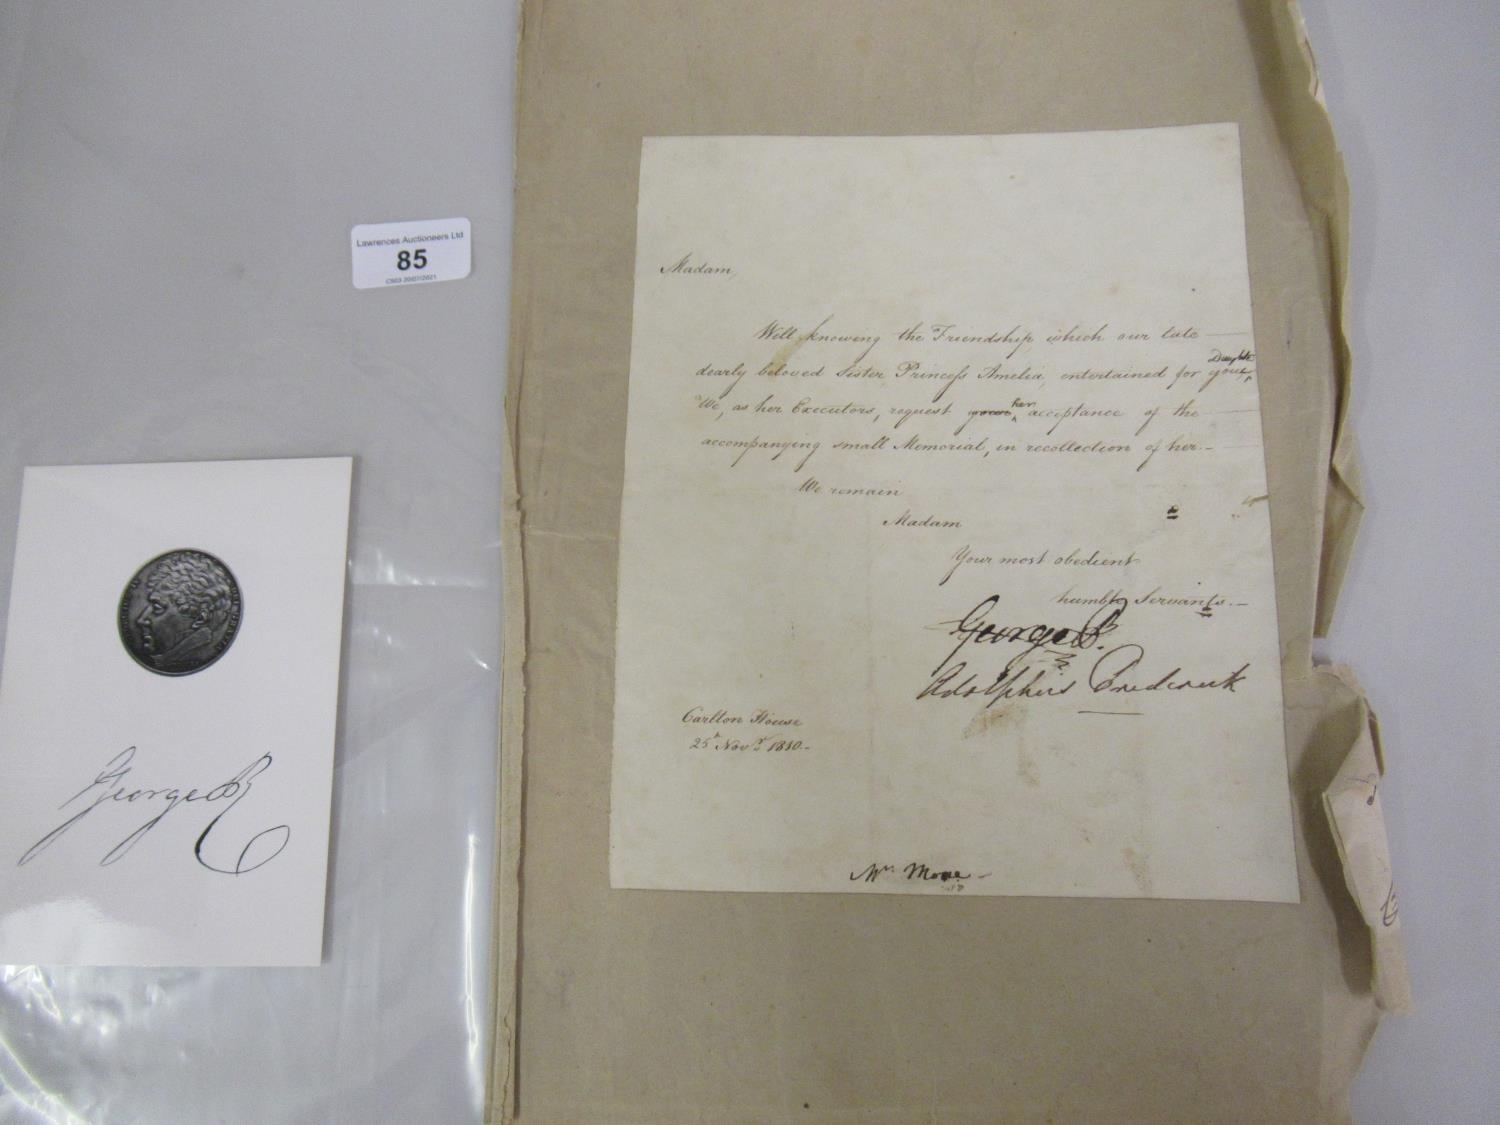 Lawrences Auctioneers Ltd
85
C503 20/07/2021
George R
Madam,
Well knowing the Friendship, which our late
dearly beloved Sister Princess Amelia, entertained for your Daughter
We, as her Executors, request your her acceptance of the
accompanying small Memorial, in recollection of her.-
We remain
Madam
Your most obedient
humble Servants.-
George P.
Adolphus Frederick
Carlton House
25th Novr 1810.-